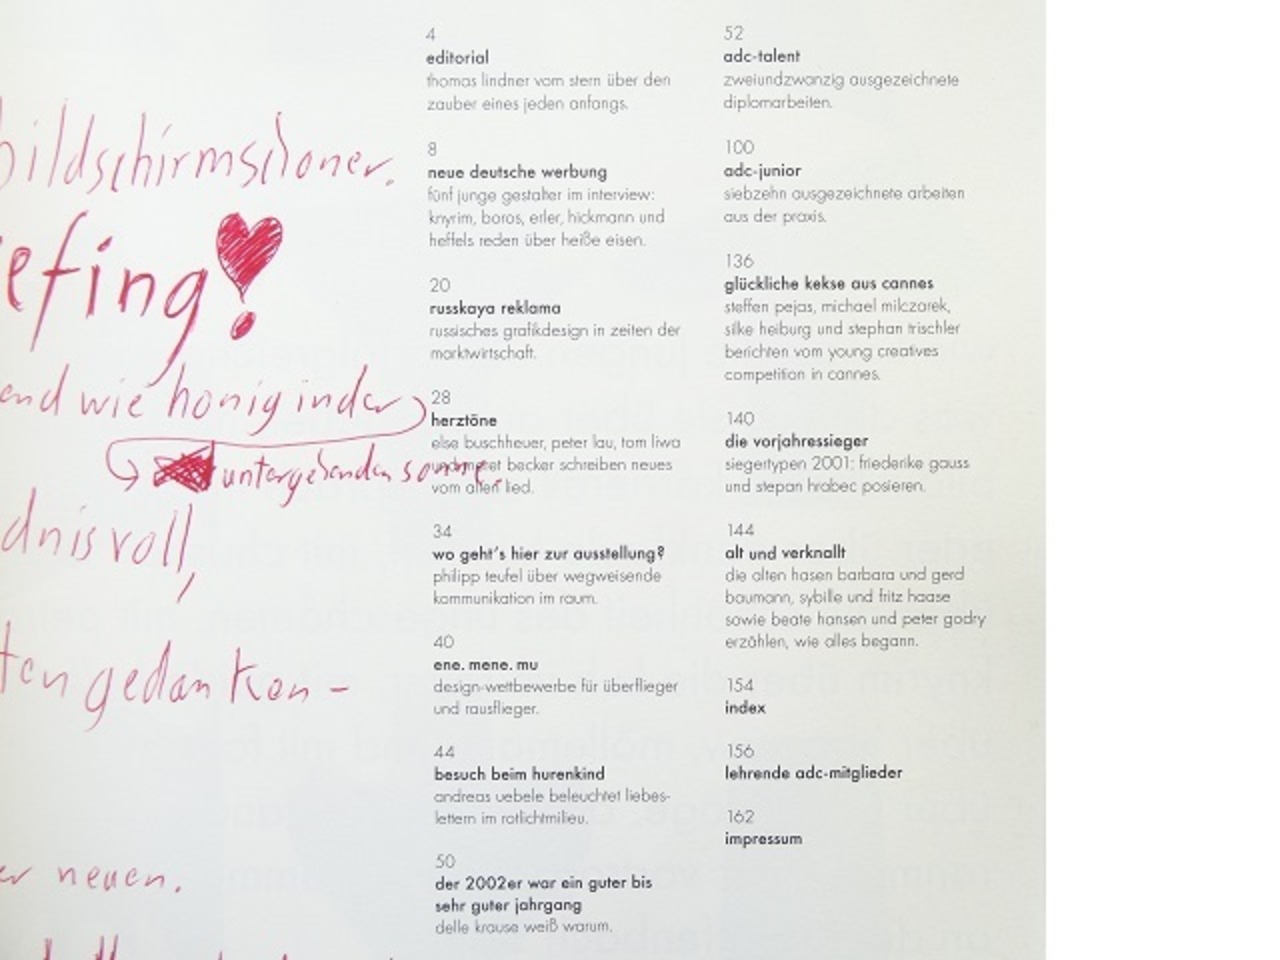 bildschirmschoner.
efing!
end wie honig in der
untergehenden sonne.
dnisvoll,
ten gedanken-
er neuen.
4
editorial
thomas lindner vom stern über den
zauber eines jeden anfangs.
8
neue deutsche werbung
fünf junge gestalter im interview:
knyrim, boros, erler, hickmann und
heffels reden über heiße eisen.
20
russkaya reklama
russisches grafikdesign in zeiten der
marktwirtschaft.
28
herztöne
else buschheuer, peter lau, tom liwa
becker schreiben neues
vom alten lied.
34
wo geht's hier zur ausstellung?
philipp teufel über wegweisende
kommunikation im raum.
40
ene. mene. mu
design-wettbewerbe für überflieger
und rausflieger.
44
besuch beim hurenkind
andreas uebele beleuchtet liebes-
lettern im rotlichtmilieu.
50
der 2002er war ein guter bis
sehr guter jahrgang
delle krause weiß warum.
52
adc-talent
zweiundzwanzig ausgezeichnete
diplomarbeiten.
100
adc-junior
siebzehn ausgezeichnete arbeiten
aus der praxis.
136
glückliche kekse aus cannes
steffen pejas, michael milczarek,
silke heiburg und stephan trischler
berichten vom young creatives
competition in cannes.
140
die vorjahressieger
siegertypen 2001: friederike gauss
und stepan hrabec posieren.
144
alt und verknallt
die alten hasen barbara und gerd
baumann, sybille und fritz haase
sowie beate hansen und peter godry
erzählen, wie alles begann.
154
index
156
lehrende adc-mitglieder
162
impressum